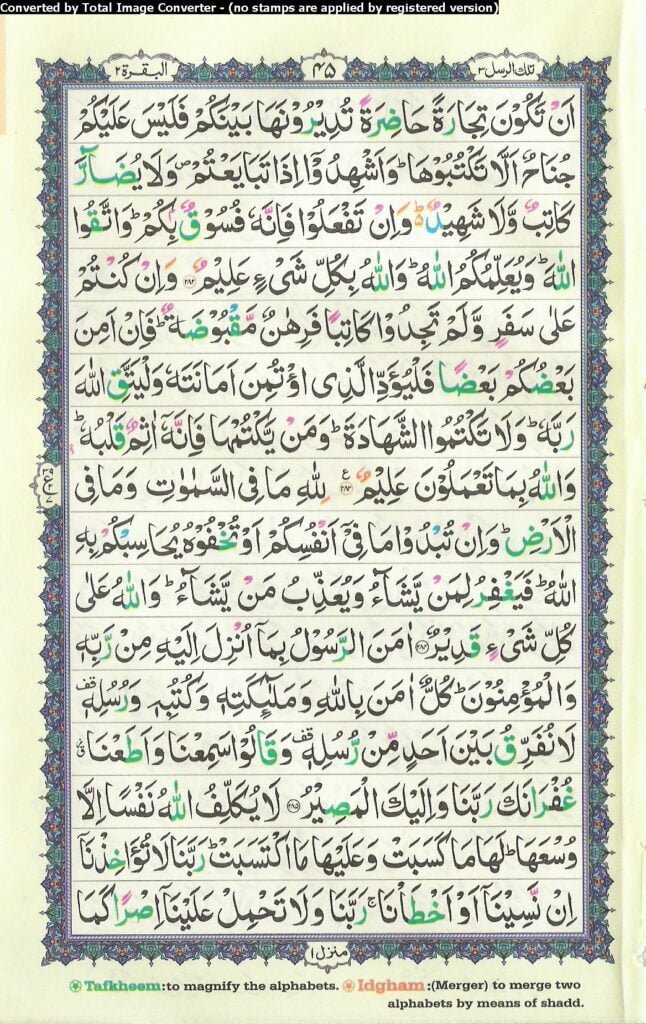 Converted by Total Image Converter - (no stamps are applied by registered version)
تلك الرسل ٣ ۴۵ البقرة ٢
اَنْ تَكُوْنَ تِجَارَةً حَاضِرَةً تُدِيْرُوْنَهَا بَيْنَكُمْ فَلَيْسَ عَلَيْكُمْ
جُنَاحٌ اَلَّا تَكْتُبُوْهَا ؕ وَاَشْهِدُوْۤا اِذَا تَبَايَعْتُمْ ۪ وَلَا يُضَآرَّ
كَاتِبٌ وَّلَا شَهِيْدٌ ۬ؕ وَاِنْ تَفْعَلُوْا فَاِنَّهٗ فُسُوْقٌۢ بِكُمْ ؕ وَاتَّقُوا
اللّٰهَ ؕ وَيُعَلِّمُكُمُ اللّٰهُ ؕ وَاللّٰهُ بِكُلِّ شَىْءٍ عَلِيْمٌ ﴿٢٨٢﴾ وَاِنْ كُنْتُمْ
عَلٰى سَفَرٍ وَّلَمْ تَجِدُوْا كَاتِبًا فَرِهٰنٌ مَّقْبُوْضَةٌ ؕ فَاِنْ اَمِنَ
بَعْضُكُمْ بَعْضًا فَلْيُؤَدِّ الَّذِى اؤْتُمِنَ اَمَانَتَهٗ وَلْيَتَّقِ اللّٰهَ
رَبَّهٗ ؕ وَلَا تَكْتُمُوا الشَّهَادَةَ ؕ وَمَنْ يَّكْتُمْهَا فَاِنَّهٗۤ اٰثِمٌ قَلْبُهٗ ؕ
وَاللّٰهُ بِمَا تَعْمَلُوْنَ عَلِيْمٌ ﴿٢٨٣﴾ ع لِلّٰهِ مَا فِى السَّمٰوٰتِ وَمَا فِى
الْاَرْضِ ؕ وَاِنْ تُبْدُوْا مَا فِىْۤ اَنْفُسِكُمْ اَوْ تُخْفُوْهُ يُحَاسِبْكُمْ بِهِ
اللّٰهُ ؕ فَيَغْفِرُ لِمَنْ يَّشَآءُ وَيُعَذِّبُ مَنْ يَّشَآءُ ؕ وَاللّٰهُ عَلٰى
كُلِّ شَىْءٍ قَدِيْرٌ ﴿٢٨٤﴾ اٰمَنَ الرَّسُوْلُ بِمَاۤ اُنْزِلَ اِلَيْهِ مِنْ رَّبِّهٖ
وَالْمُؤْمِنُوْنَ ؕ كُلٌّ اٰمَنَ بِاللّٰهِ وَمَلٰٓئِكَتِهٖ وَكُتُبِهٖ وَرُسُلِهٖ قف
لَا نُفَرِّقُ بَيْنَ اَحَدٍ مِّنْ رُّسُلِهٖ قف وَقَالُوْا سَمِعْنَا وَاَطَعْنَا
غُفْرَانَكَ رَبَّنَا وَاِلَيْكَ الْمَصِيْرُ ﴿٢٨٥﴾ لَا يُكَلِّفُ اللّٰهُ نَفْسًا اِلَّا
وُسْعَهَا ؕ لَهَا مَا كَسَبَتْ وَعَلَيْهَا مَا اكْتَسَبَتْ ؕ رَبَّنَا لَا تُؤَاخِذْنَاۤ
اِنْ نَّسِيْنَاۤ اَوْ اَخْطَاْنَا ۚ رَبَّنَا وَلَا تَحْمِلْ عَلَيْنَاۤ اِصْرًا كَمَا
منزل ١
Tafkheem:to magnify the alphabets. Idgham:(Merger) to merge two
alphabets by means of shadd.